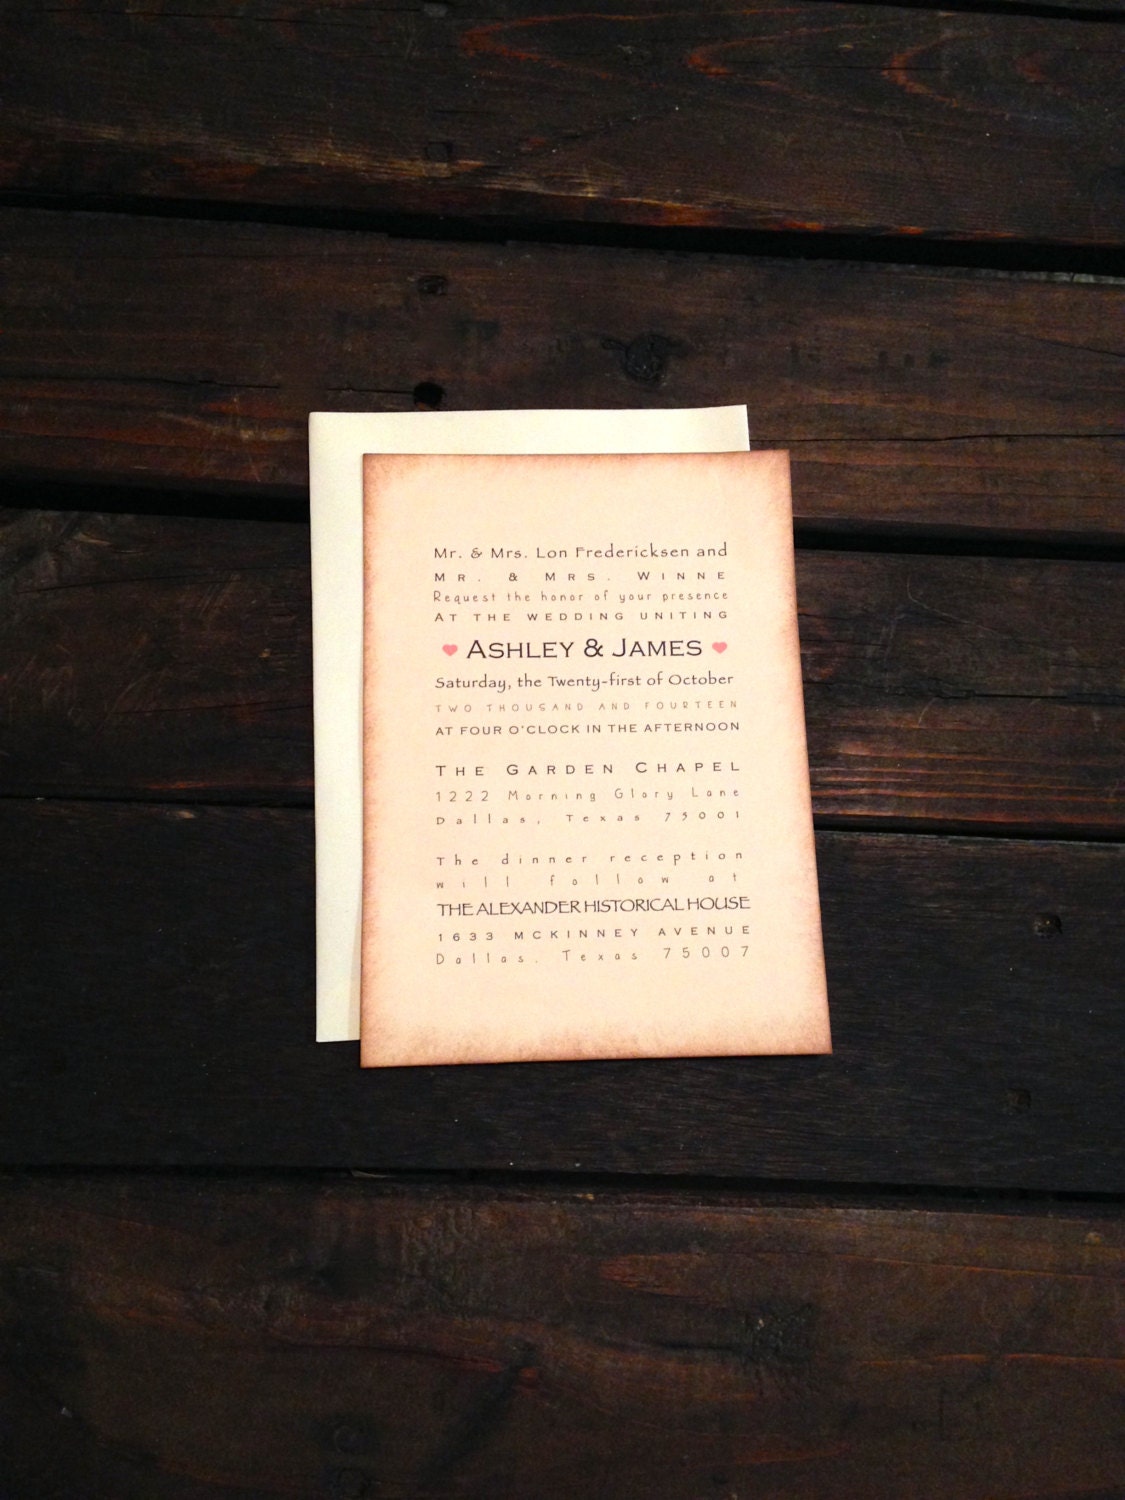 Mr. & Mrs. Lon Fredericksen and
Mr. & Mrs. Winne
Request the honor of your presence
At the wedding uniting
Ashley & James
Saturday, the Twenty-first of October
two thousand and fourteen
at four o'clock in the afternoon
The Garden Chapel
1222 Morning Glory Lane
Dallas, Texas 75001
The dinner reception
will follow at
THE ALEXANDER HISTORICAL HOUSE
1633 McKinney Avenue
Dallas, Texas 75007